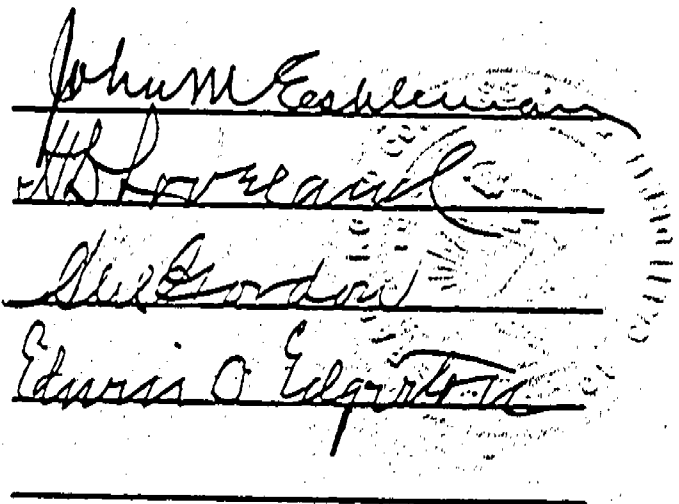 John M Eshleman
H D Loveland
Alex Gordon
Edwin O Edgerton